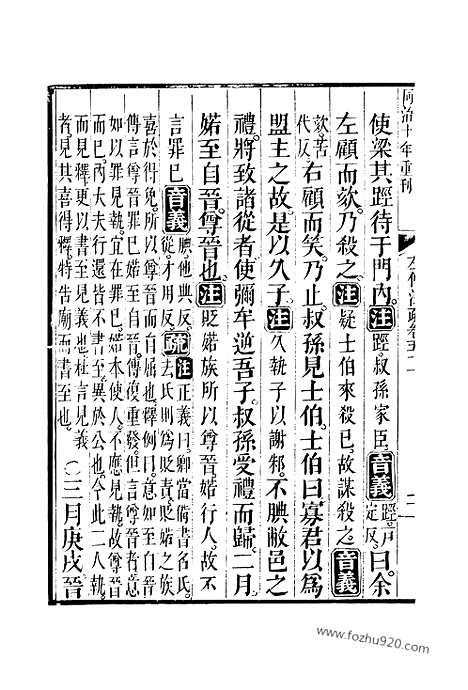 同治十年重刊 左傳注疏卷五十一 二
使梁其踁待于門內。注踁叔孫家臣音義踁戶定反曰余
左顧而欬乃殺之。注疑士伯來殺已故謀殺之音義
欬苦代反右顧而笑乃止叔孫見士伯士伯曰寡君以爲
盟主之故是以久子注久執子以謝邾不腆敝邑之
禮將致諸從者使彌牟逆吾子叔孫受禮而歸二月
婼至自晉尊晉也注貶婼族所以尊晉婼行人故不
言罪已音義腆他典反從才用反疏注正義曰卿當備書名氏去氏則爲貶責貶婼之族
喜於得免所以尊晉而自屈也釋例曰意如至自晉
傳言尊晉罪已婼至自晉傳復重發但言尊晉者意
如以罪見執宜在罪已婼本使人不應見執故尊晉
而已內大夫行還皆不書至異於公也今此二人執
而見釋更以書至見義也杜言見義
者見其喜得釋特告廟而書至也
○三月庚戌晉
www.fozhu920.com